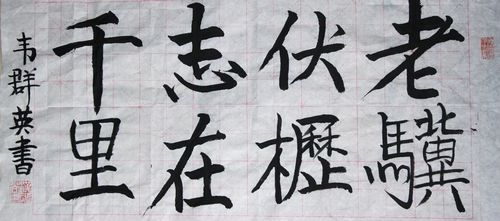 老驥
伏櫪
志在
千里
韦群英書